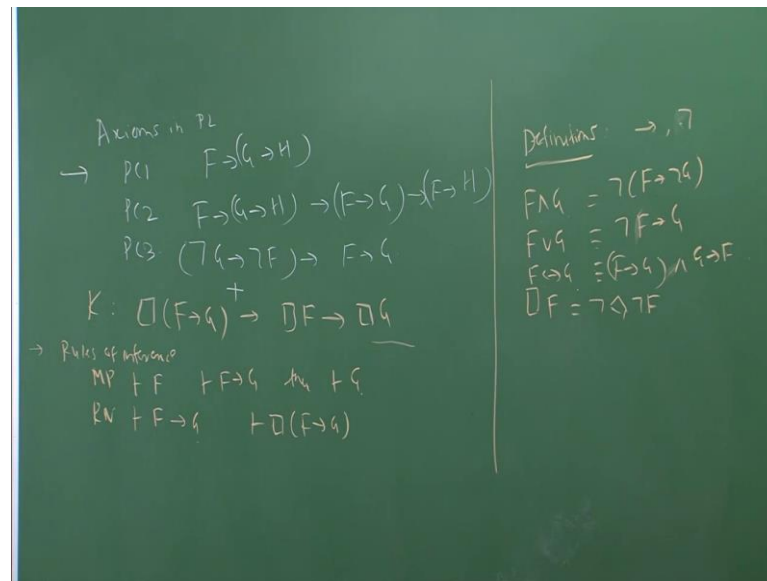 Axioms in PL
→ PC1 F→(G→H)
PC2 F→(G→H) →(F→G)→(F→H)
PC3 (¬G→¬F)→ F→G
+
K: □(F→G) → □F→ □G
→ Rules of inference
MP ⊢F ⊢F→G then ⊢G
RN ⊢F→G ⊢□(F→G)
Definitions: →, ¬
F∧G ≡ ¬(F→¬G)
F∨G ≡ ¬F→G
F↔G ≡(F→G) ∧ G→F
□F = ¬◇¬F